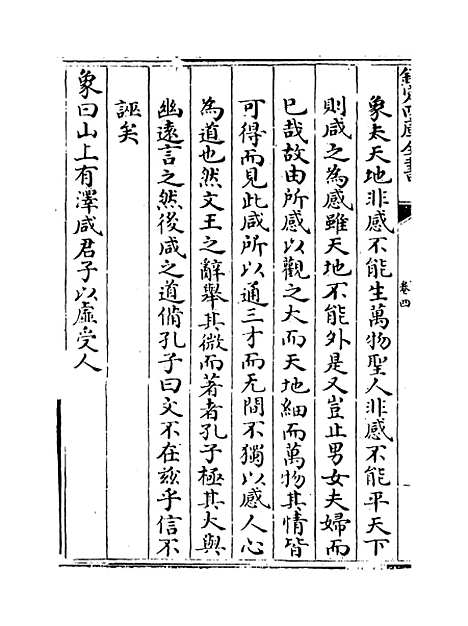 欽定四庫全書
卷四
象太天地非感不能生萬物聖人非感不能平天下
則咸之為感雖天地不能外是又豈止男女夫婦而
已哉故由所感以觀之大而天地細而萬物其情皆
可得而見此咸所以通三才而无間不獨以感人心
為道也然文王之辭舉其微而著者孔子極其大與
幽遠言之然後咸之道備孔子曰文不在兹乎信不
誣矣
象曰山上有澤咸君子以虛受人